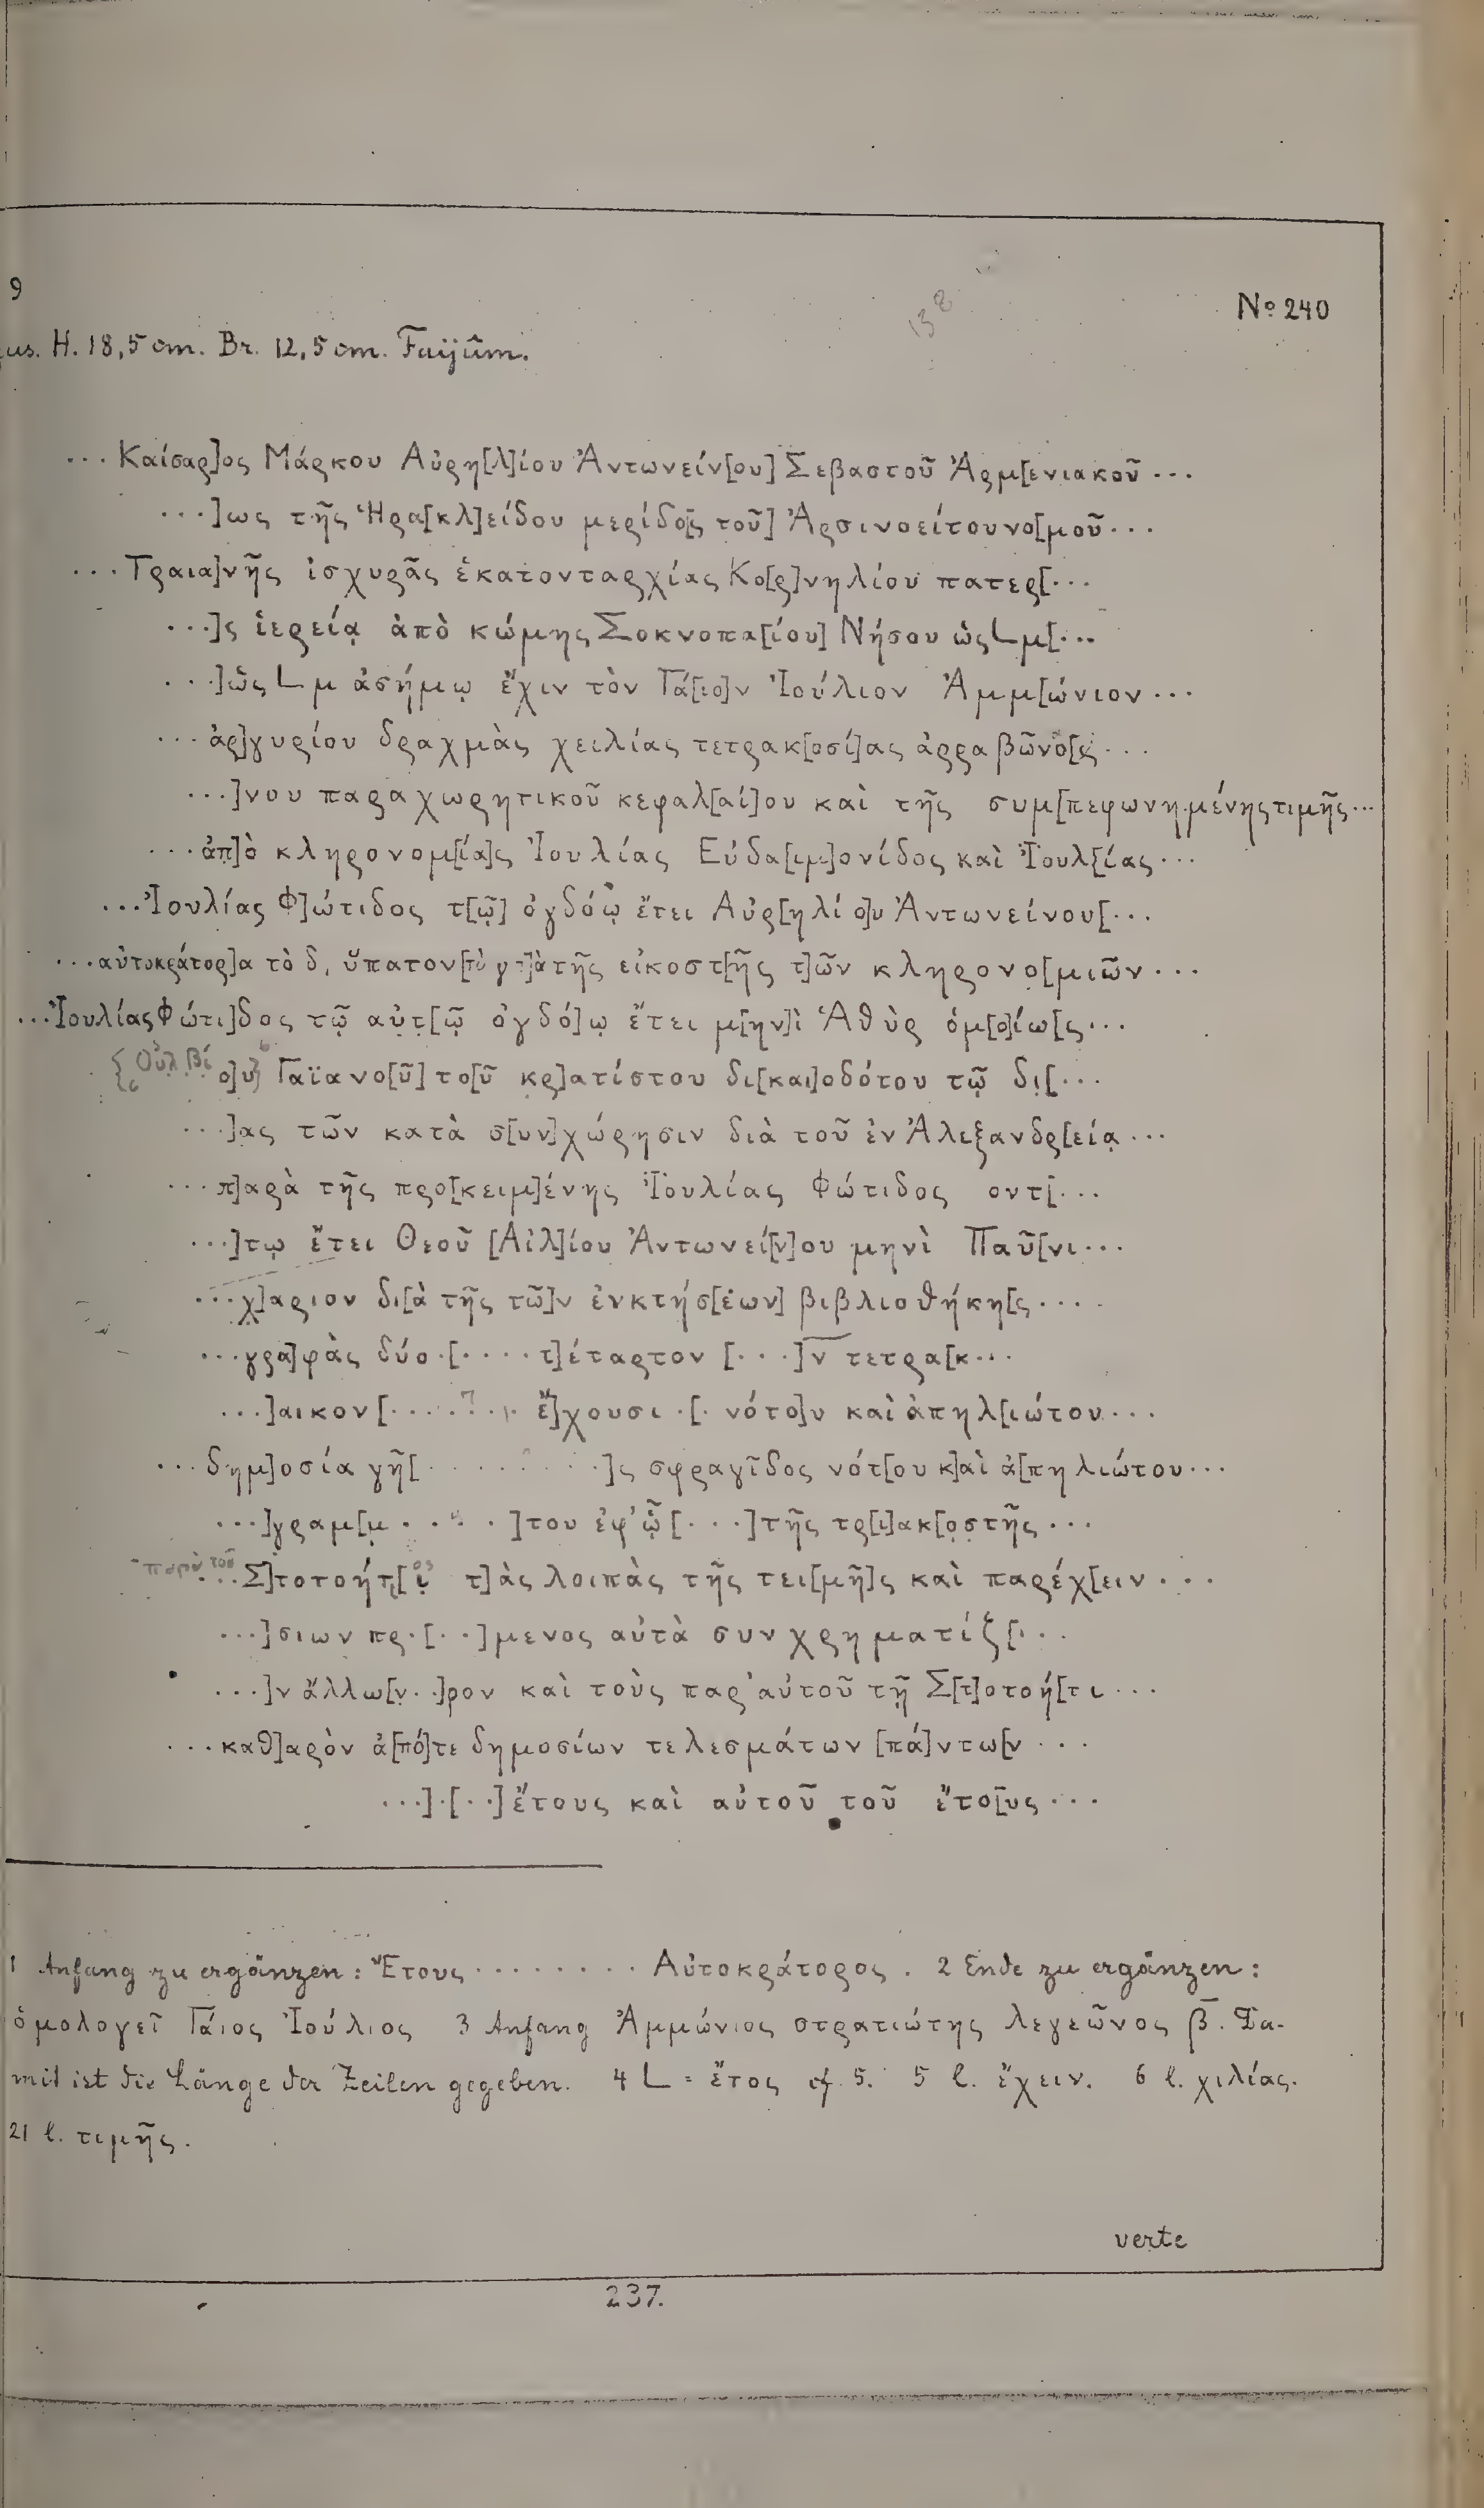 9
No 240
us. H. 18,5 cm. Br. 12,5 cm. Faijûm.
... Καίσαρ]ος Μάρκου Αὐρη[λ]ίου Ἀντωνείν[ου] Σεβαστοῦ Ἀρμ[ενιακοῦ ...
...]ως τῆς Ἡρα[κλ]είδου μερίδο[ς τοῦ] Ἀρσινοείτου νο[μοῦ ...
... Τραια]νῆς ἰσχυρᾶς ἑκατονταρχίας Κο[ρ]νηλίου πατερ[...
...]ς ἱερείᾳ ἀπὸ κώμης Σοκνοπα[ίου] Νήσου ὡς L μ[...
...]ὡς L μ ἀσήμῳ ἔχιν τὸν Γά[ιο]ν Ἰούλιον Ἀμμ[ώνιον ...
... ἀρ]γυρίου δραχμὰς χειλίας τετρακ[οσί]ας ἀρραβῶνο[ς ...
...]νου παραχωρητικοῦ κεφαλ[αί]ου καὶ τῆς συμ[πεφωνημένης τιμῆς ...
... ἀπ]ὸ κληρονομ[ία]ς Ἰουλίας Εὐδα[ιμ]ονίδος καὶ Ἰουλ[ίας ...
... Ἰουλίας Φ]ώτιδος τ[ῷ] ὀγδόῳ ἔτει Αὐρ[ηλί ο]υ Ἀντωνείνου[...
... αὐτοκράτορ]α τὸ δ, ὕπατον [τὸ γ ]ὰ τῆς εἰκοστ[ῆς τ]ῶν κληρονο[μιῶν ...
... Ἰουλίας Φώτι]δος τῷ αὐτ[ῷ ὀγδό]ῳ ἔτει μ[ην]ὶ Ἁθὺρ ὁμ[ο]ίω[ς ...
{Οὐλπί ο]υ} Γαϊανο[ῦ] το[ῦ κρ]ατίστου δι[και]οδότου τῷ δι[...
...]ας τῶν κατὰ σ[υν]χώρησιν διὰ τοῦ ἐν Ἀλεξανδρ[είᾳ ...
... π]αρὰ τῆς προ[κειμ]ένης Ἰουλίας Φώτιδος οντ[...
...]τῳ ἔτει Θεοῦ [Αἰλ]ίου Ἀντωνεί[ν]ου μηνὶ Παῦ[νι ...
... χ]αριον δι[ὰ τῆς τῶ]ν ἐνκτήσ[εων] βιβλιοθήκη[ς ....
... γρα]φὰς δύο .[.... τ]έταρτον [...]ν τετρα[κ...
...]αικον[........ ἔ]χουσι .[. νότο]υ καὶ ἀπηλ[ιώτου ...
... δημ]οσία γῆ[.........]ς σφραγῖδος νότ[ου κ]αὶ ἀ[πηλιώτου ...
...]γραμ[μ.....]του ἐφ' ᾧ [...] τῆς τρ[ι]ακ[οστῆς ...
παρὰ τοῦ ... Σ]τοτοήτ[ι τ]ὰς λοιπὰς τῆς τει[μῆ]ς καὶ παρέχ[ειν ...
...]σιων πρ.[..]μενος αὐτὰ συνχρηματίζ[...
...]ν ἄλλω[ν..]ρον καὶ τοὺς παρ' αὐτοῦ τῇ Σ[τ]οτοή[τι ...
... καθ]αρὸν ἀ[πό] τε δημοσίων τελεσμάτων [πά]ντω[ν ...
...].[..] ἔτους καὶ αὐτοῦ τοῦ ἔτο[υς ...
1 Anfang zu ergänzen: Ἔτους ........ Αὐτοκράτορος. 2 Ende zu ergänzen:
ὁμολογεῖ Γάιος Ἰούλιος 3 Anfang Ἀμμώνιος στρατιώτης λεγεῶνος β̅. Da-
mit ist die Länge der Zeilen gegeben. 4 L = ἔτος cf. 5. 5 l. ἔχειν. 6 l. χιλίας.
21 l. τιμῆς.
verte
237.